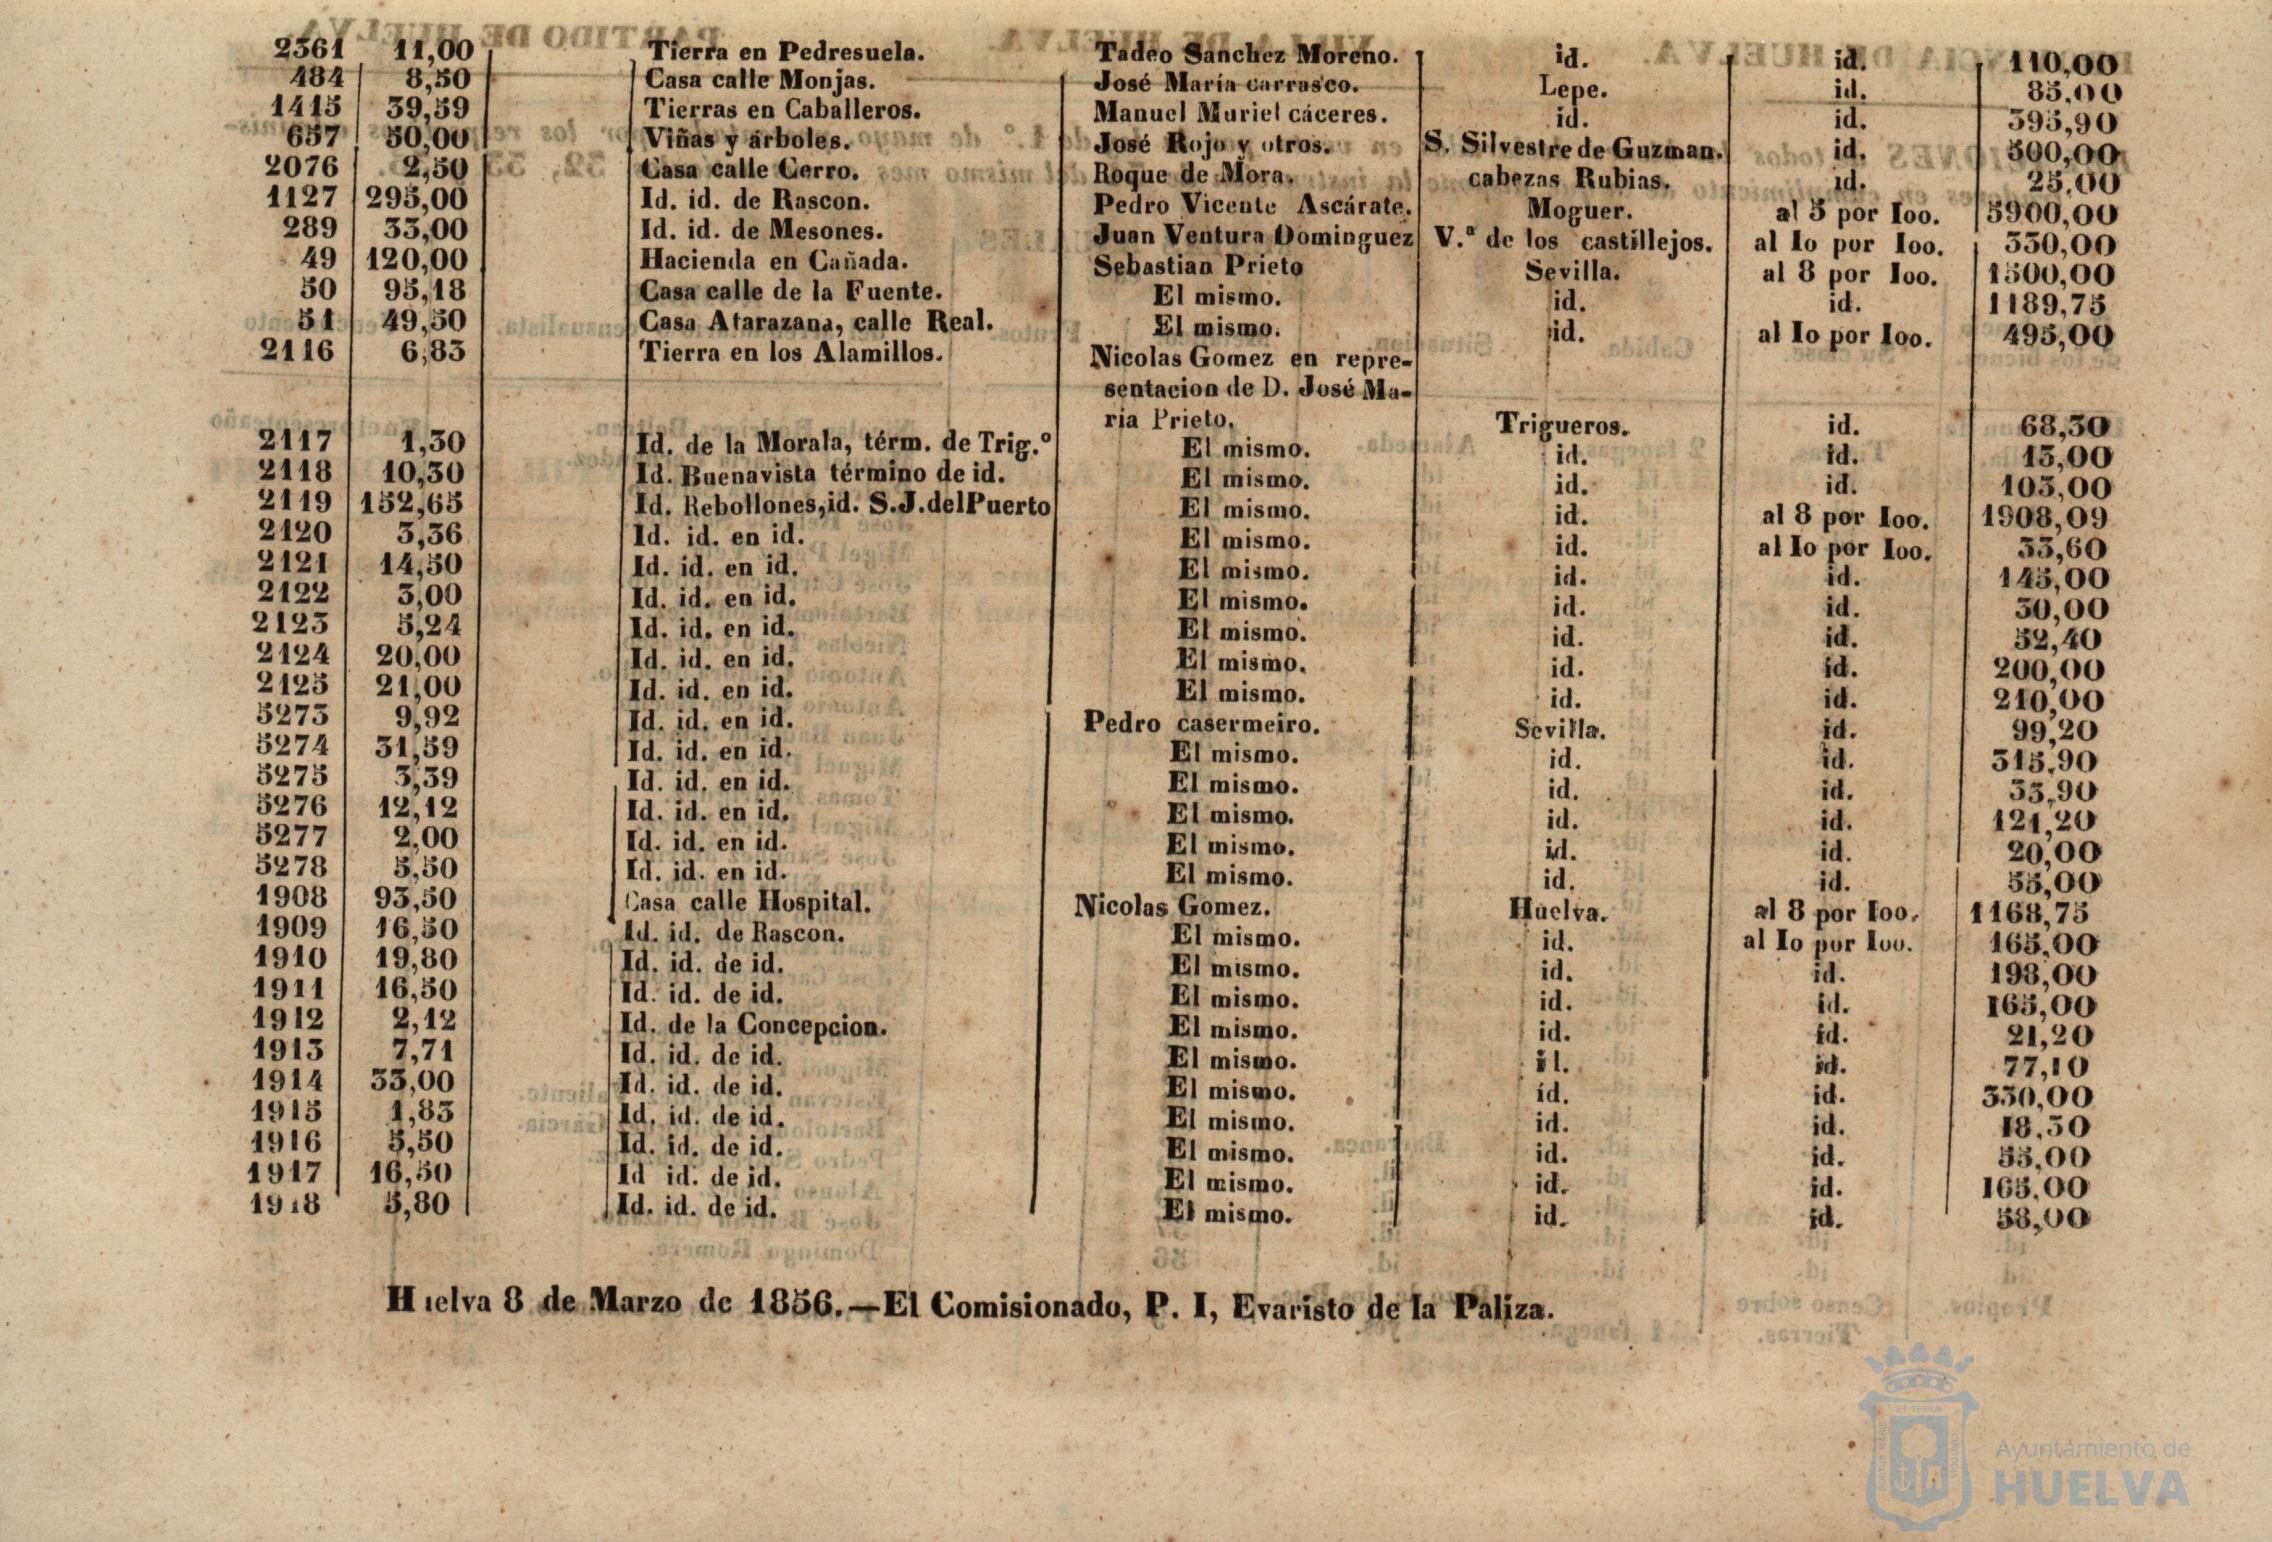 2361 11,00 Tierra en Pedresuela. Tadeo Sanchez Moreno. id. id. 110,00
484 8,50 Casa calle Monjas. José María carrasco. Lepe. id. 85,00
1415 39,59 Tierras en Caballeros. Manuel Muriel cáceres. id. id. 395,90
657 50,00 Viñas y árboles. José Rojo y otros. S. Silvestre de Guzman. id. 500,00
2076 2,50 Casa calle Cerro. Roque de Mora. cabezas Rubias. id. 25,00
1127 295,00 Id. id. de Rascon. Pedro Vicente Ascárate. Moguer. al 5 por Ioo. 5900,00
289 33,00 Id. id. de Mesones. Juan Ventura Dominguez V.ª de los castillejos. al Io por Ioo. 330,00
49 120,00 Hacienda en Cañada. Sebastian Prieto Sevilla. al 8 por Ioo. 1500,00
50 95,18 Casa calle de la Fuente. El mismo. id. id. 1189,75
51 49,50 Casa Atarazana, calle Real. El mismo. id. al Io por Ioo. 495,00
2116 6,83 Tierra en los Alamillos. Nicolas Gomez en repre-
sentacion de D. José Ma-
ria Prieto. Trigueros. id. 68,30
2117 1,30 Id. de la Morala, térm. de Trig.º El mismo. id. id. 13,00
2118 10,30 Id. Buenavista término de id. El mismo. id. id. 103,00
2119 152,65 Id. Rebollones, id. S. J. del Puerto El mismo. id. al 8 por Ioo. 1908,09
2120 3,36 Id. id. en id. El mismo. id. al Io por Ioo. 33,60
2121 14,50 Id. id. en id. El mismo. id. id. 145,00
2122 3,00 Id. id. en id. El mismo. id. id. 30,00
2123 5,24 Id. id. en id. El mismo. id. id. 52,40
2124 20,00 Id. id. en id. El mismo. id. id. 200,00
2125 21,00 Id. id. en id. El mismo. id. id. 210,00
5273 9,92 Id. id. en id. Pedro casermeiro. Sevilla. id. 99,20
5274 31,59 Id. id. en id. El mismo. id. id. 315,90
5275 3,39 Id. id. en id. El mismo. id. id. 33,90
5276 12,12 Id. id. en id. El mismo. id. id. 121,20
5277 2,00 Id. id. en id. El mismo. id. id. 20,00
5278 5,50 Id. id. en id. El mismo. id. id. 55,00
1908 93,50 Casa calle Hospital. Nicolas Gomez. Huelva. al 8 por Ioo. 1168,75
1909 16,50 Id. id. de Rascon. El mismo. id. al Io por Ioo. 165,00
1910 19,80 Id. id. de id. El mismo. id. id. 198,00
1911 16,50 Id. id. de id. El mismo. id. id. 165,00
1912 2,12 Id. de la Concepcion. El mismo. id. id. 21,20
1913 7,71 Id. id. de id. El mismo. id. id. 77,10
1914 33,00 Id. id. de id. El mismo. id. id. 330,00
1915 1,83 Id. id. de id. El mismo. id. id. 18,30
1916 5,50 Id. id. de id. El mismo. id. id. 55,00
1917 16,50 Id id. de id. El mismo. id. id. 165,00
1918 5,80 Id. id. de id. El mismo. id. id. 58,00
Huelva 8 de Marzo de 1856.—El Comisionado, P. I, Evaristo de la Paliza.
Ayuntamiento de
HUELVA